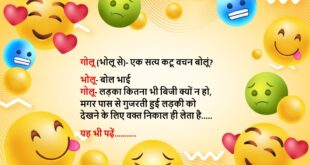 गोलू (भोलू से)- एक सत्य कटू वचन बोलूं?
भोलू- बोल भाई
गोलू- लड़का कितना भी बिजी क्यों न हो,
मगर पास से गुजरती हुई लड़की को
देखने के लिए वक्त निकाल ही लेता है.....
यह भी पढ़ें..........